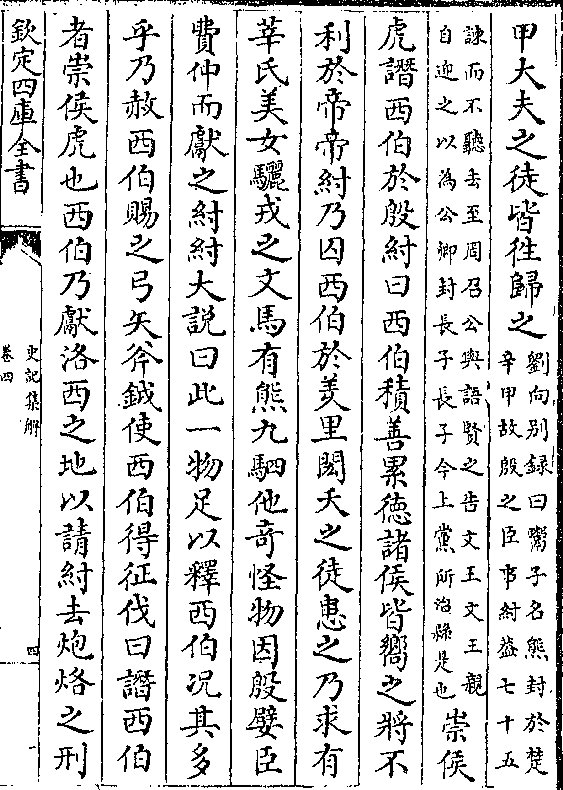 甲大夫之徒皆徃歸之劉向别録曰鬻子名熊封於楚
辛甲故殷之臣事紂葢七十五
諫而不聽去至周召公與語賢之告文王文王親
自迎之以為公卿封長子長子今上黨所治縣是也崇侯
虎譖西伯於殷紂曰西伯積善累徳諸侯皆嚮之將不
利於帝帝紂乃囚西伯於羑里閎夭之徒患之乃求有
莘氏美女驪戎之文馬有熊九駟他竒怪物因殷嬖臣
費仲而獻之紂紂大説曰此一物足以釋西伯况其多
乎乃赦西伯賜之弓矢斧鉞使西伯得征伐曰譖西伯
者崇侯虎也西伯乃獻洛西之地以請紂去炮烙之刑
欽定四庫全書
史記集解
卷四
四